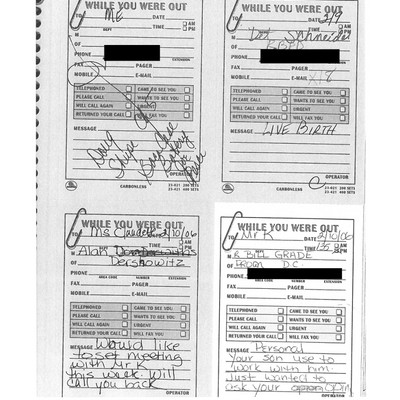 WHILE YOU WERE OUT
TO ME
DATE
DEPT
TIME AM PM
M
OF
PHONE
FAX PAGER
MOBILE E-MAIL
TELEPHONED CAME TO SEE YOU
PLEASE CALL WANTS TO SEE YOU
WILL CALL AGAIN URGENT
RETURNED YOUR CALL WILL FAX YOU
MESSAGE
Doug
OPERATOR
CARBONLESS
23-421 200 SETS
23-021 400 SETS
WHILE YOU WERE OUT
TO
DATE 2/9
TIME AM PM
M Det Schneider
OF BBPD
PHONE
FAX PAGER
MOBILE E-MAIL X18
TELEPHONED CAME TO SEE YOU
PLEASE CALL WANTS TO SEE YOU
WILL CALL AGAIN URGENT
RETURNED YOUR CALL WILL FAX YOU
MESSAGE LIVE BIRTH
OPERATOR
CARBONLESS
23-421 200 SETS
23-021 400 SETS
WHILE YOU WERE OUT
TO Ms Claudette 2/10/06
TIME AM PM
M Alan
OF Dershowitz
PHONE
AREA CODE NUMBER EXTENSION
FAX
MOBILE
TELEPHONED CAME TO SEE YOU
PLEASE CALL WANTS TO SEE YOU
WILL CALL AGAIN URGENT
RETURNED YOUR CALL WILL FAX YOU
MESSAGE Would like
to set meeting
with Mr K
this week. Will
call you back
OPERATOR
WHILE YOU WERE OUT
TO Mr K DATE 2/10/06
TIME AM PM
M R Bill GRADE
OF FROM D.C.
PHONE
AREA CODE NUMBER EXTENSION
FAX
MOBILE
TELEPHONED CAME TO SEE YOU
PLEASE CALL WANTS TO SEE YOU
WILL CALL AGAIN URGENT
RETURNED YOUR CALL WILL FAX YOU
MESSAGE Personal
Your son use to
work with him.
Just wanted to
ask your
OPERATOR